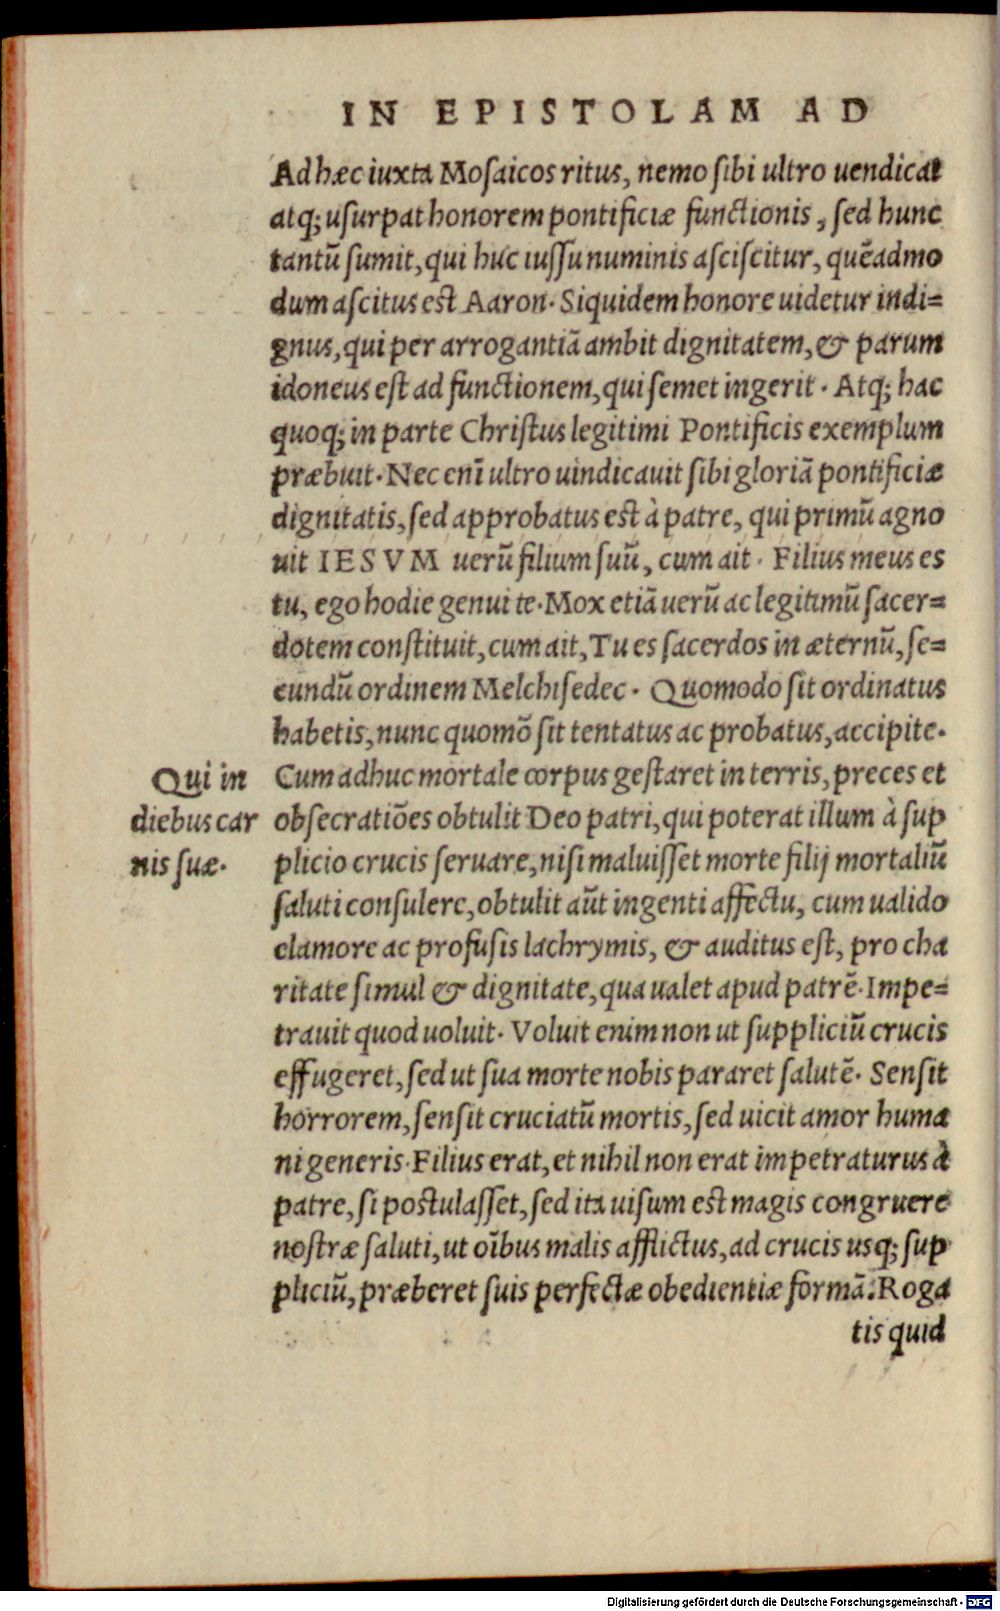 IN EPISTOLAM AD
Ad hæc iuxta Mosaicos ritus, nemo sibi ultro uendicat
atq; usurpat honorem pontificiæ functionis, sed hunc
tantũ sumit, qui huc iussu numinis asciscitur, quẽadmo
dum ascitus est Aaron. Siquidem honore uidetur indi=
gnus, qui per arrogantiã ambit dignitatem, & parum
idoneus est ad functionem, qui semet ingerit. Atq; hac
quoq; in parte Christus legitimi Pontificis exemplum
præbuit. Nec enĩ ultro uindicauit sibi gloriã pontificiæ
dignitatis, sed approbatus est à patre, qui primũ agno
uit IESVM uerũ filium suũ, cum ait. Filius meus es
tu, ego hodie genui te. Mox etiã uerũ ac legitimũ sacer=
dotem constituit, cum ait, Tu es sacerdos in æternũ, se=
cundũ ordinem Melchisedec. Quomodo sit ordinatus
habetis, nunc quomõ sit tentatus ac probatus, accipite.
Qui in
diebus car
nis suæ.
Cum adhuc mortale corpus gestaret in terris, preces et
obsecratiões obtulit Deo patri, qui poterat illum à sup
plicio crucis seruare, nisi maluisset morte filij mortaliũ
saluti consulere, obtulit aũt ingenti affectu, cum ualido
clamore ac profusis lachrymis, & auditus est, pro cha
ritate simul & dignitate, qua ualet apud patrẽ. Impe=
trauit quod uoluit. Voluit enim non ut suppliciũ crucis
effugeret, sed ut sua morte nobis pararet salutẽ. Sensit
horrorem, sensit cruciatũ mortis, sed uicit amor huma
ni generis. Filius erat, et nihil non erat impetraturus à
patre, si postulasset, sed ita uisum est magis congruere
nostræ saluti, ut oĩbus malis afflictus, ad crucis usq; sup
pliciũ, præberet suis perfectæ obedientiæ formã. Roga
tis quid
Digitalisierung gefördert durch die Deutsche Forschungsgemeinschaft - DFG